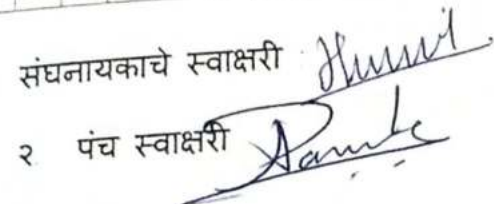 संघनायकाचे स्वाक्षरी
२ पंच स्वाक्षरी